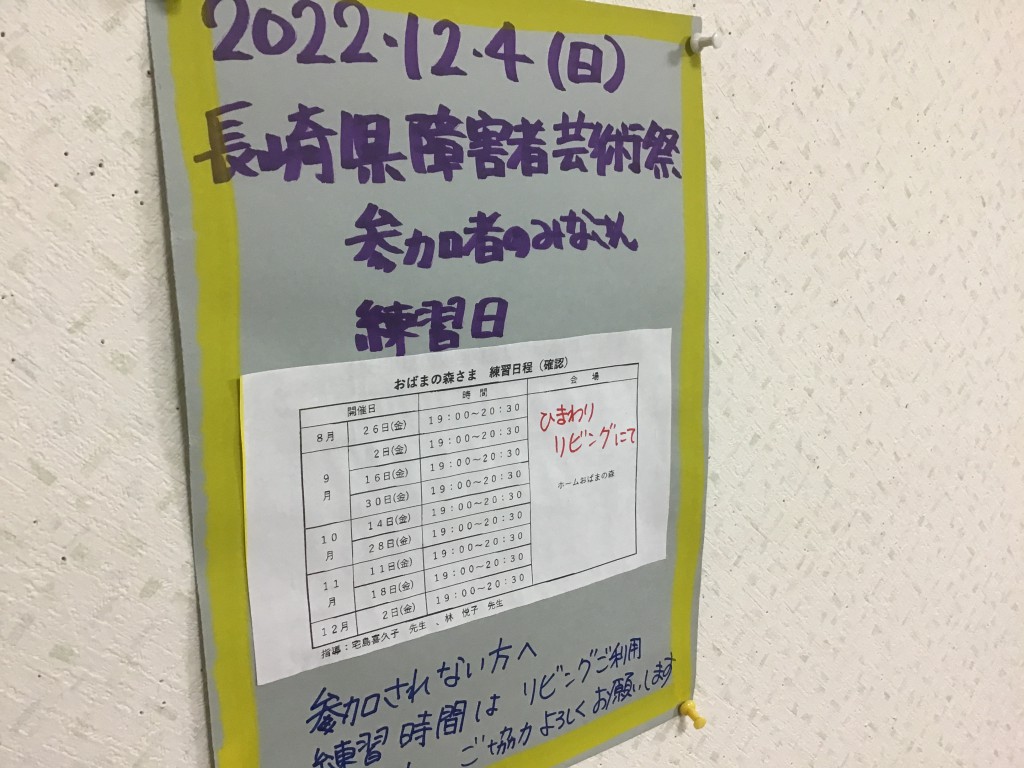 2022.12.4(日)
長崎県障害者芸術祭
参加者のみなさん
練習日
おばまの森さま 練習日程（確認）
開催日 時間 会場
8月 26日(金) 19:00～20:30
9月 2日(金) 19:00～20:30
16日(金) 19:00～20:30
30日(金) 19:00～20:30
10月 14日(金) 19:00～20:30
28日(金) 19:00～20:30
11月 11日(金) 19:00～20:30
18日(金) 19:00～20:30
12月 2日(金) 19:00～20:30
ひまわり
リビングにて
ホームおばまの森
指導：宅島喜久子 先生 、林 悦子 先生
参加されない方へ
練習時間は リビングご利用
ご協力よろしくお願いします